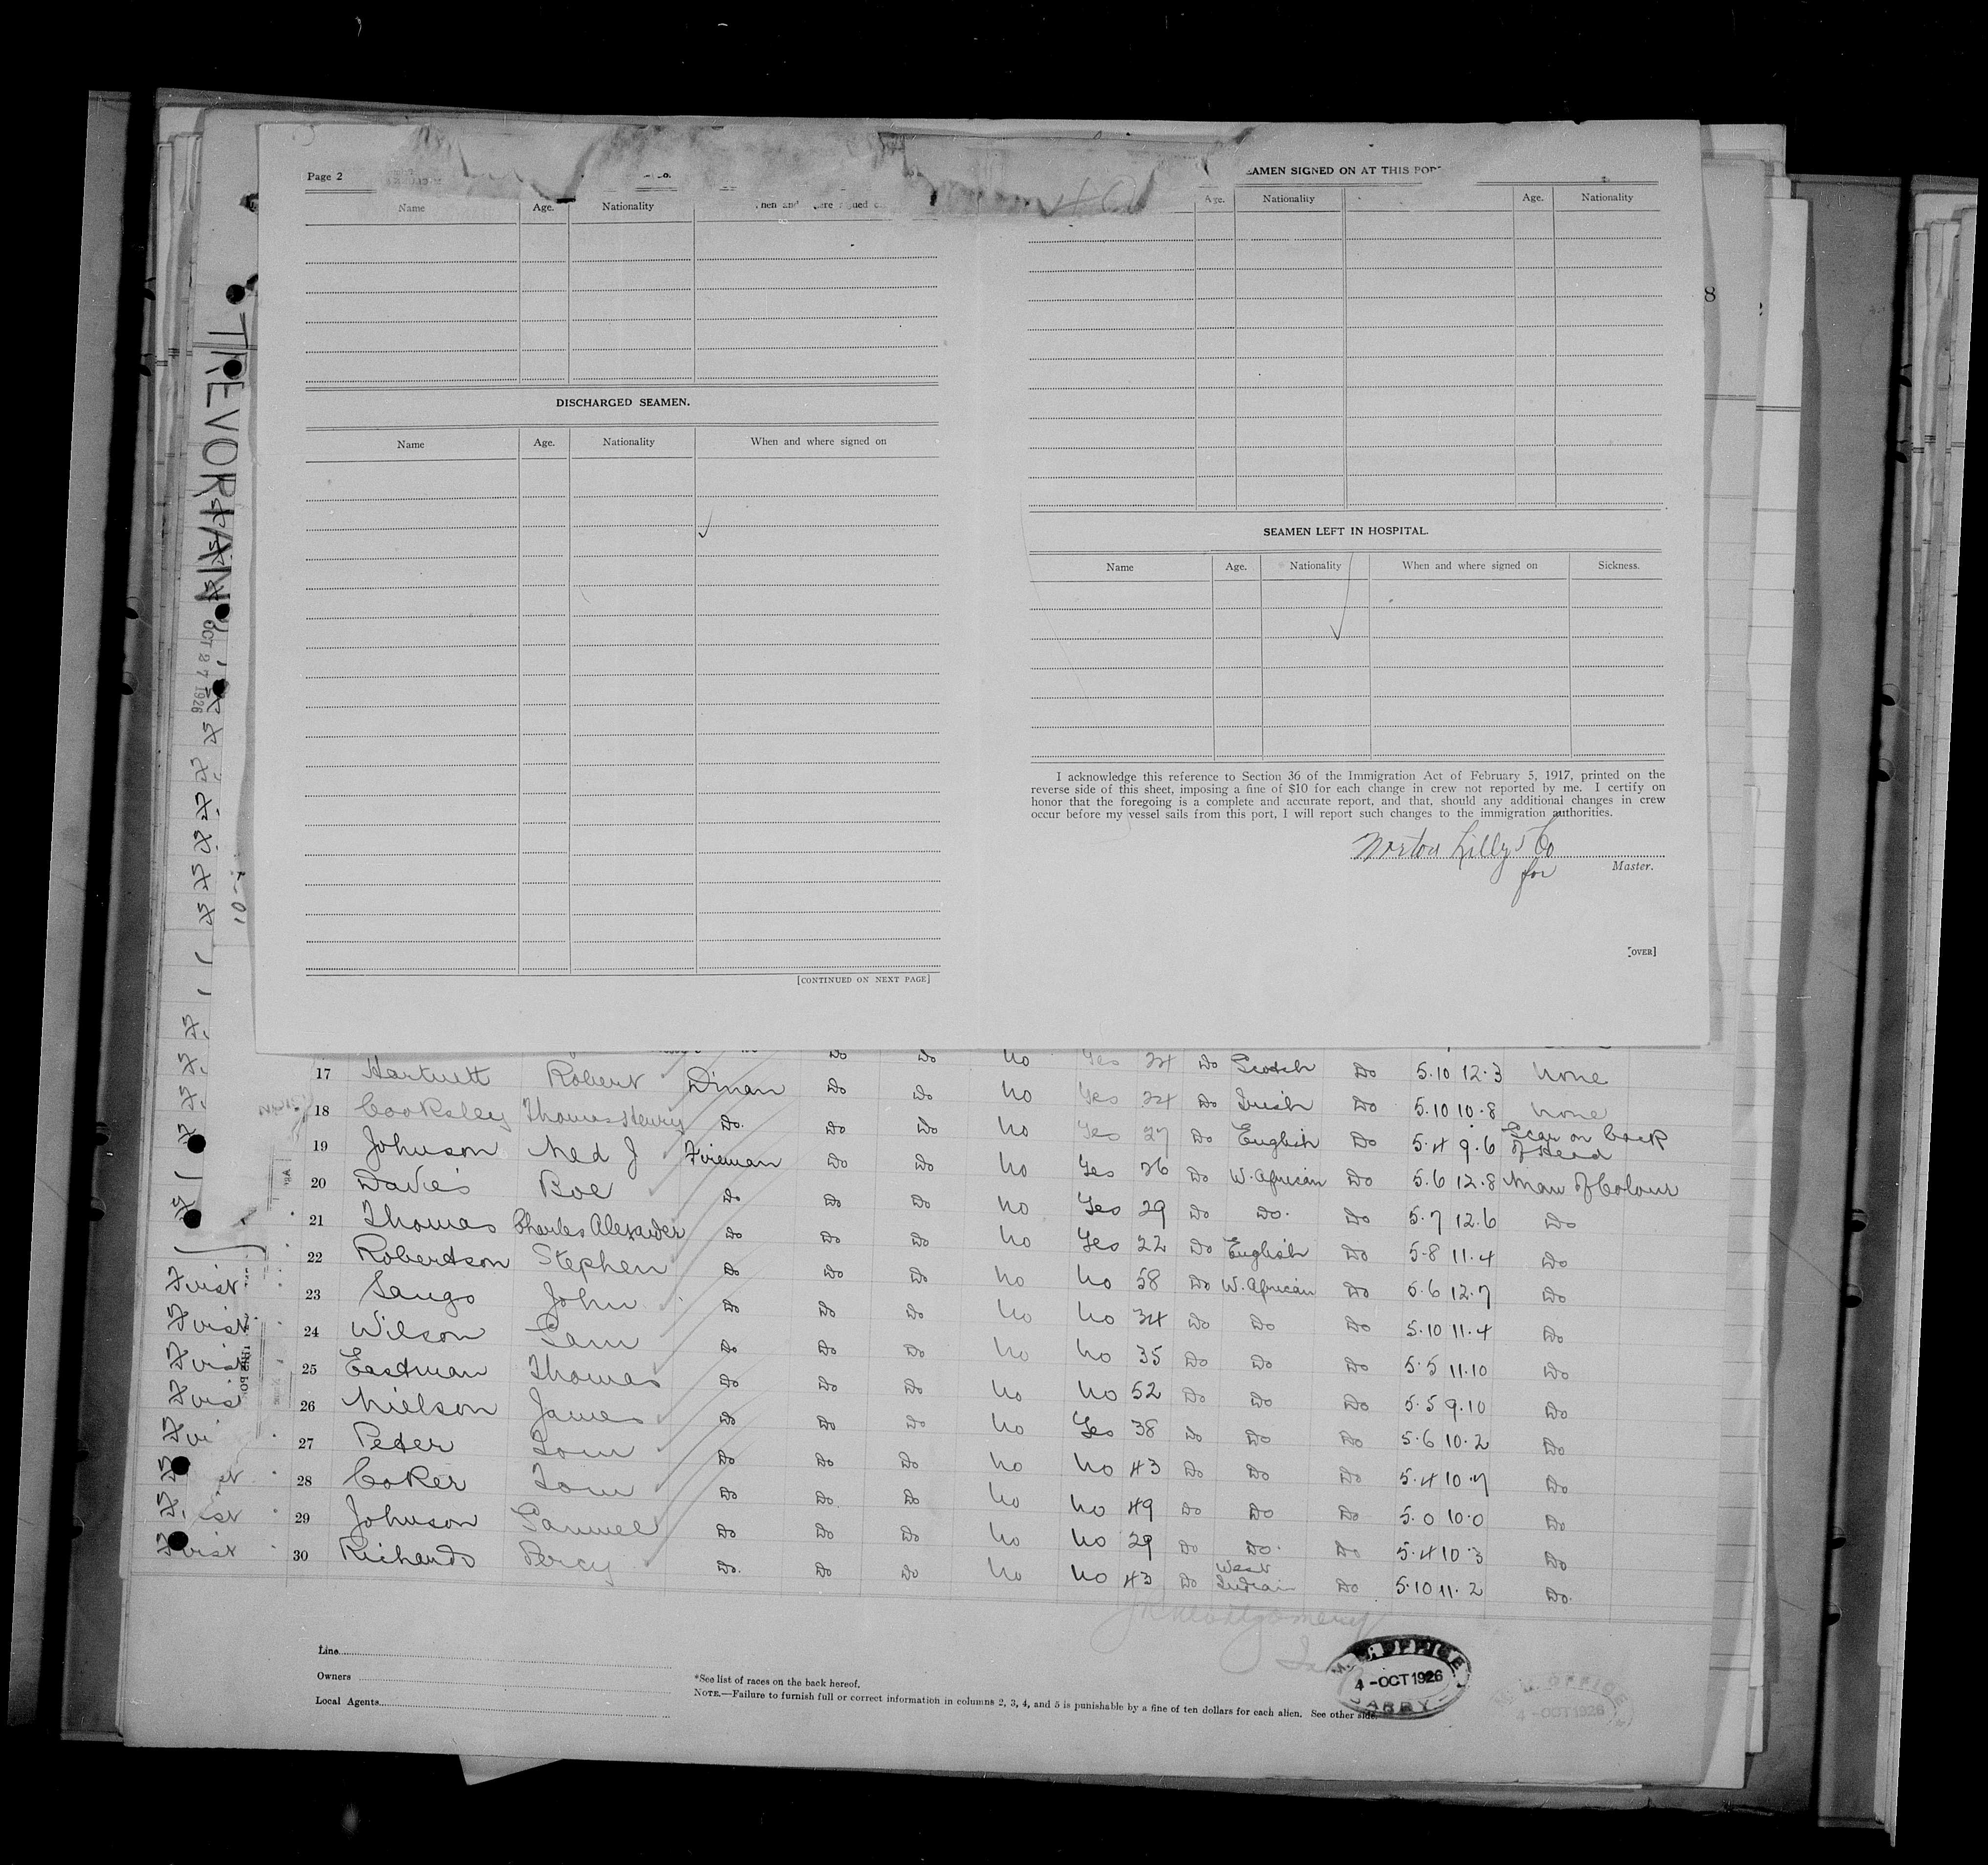 Page 2
SEAMEN SIGNED ON AT THIS PORT
Name Age. Nationality
Age. Nationality Age. Nationality
DISCHARGED SEAMEN.
Name Age. Nationality When and where signed on
[CONTINUED ON NEXT PAGE]
SEAMEN LEFT IN HOSPITAL.
Name Age. Nationality When and where signed on Sickness.
I acknowledge this reference to Section 36 of the Immigration Act of February 5, 1917, printed on the
reverse side of this sheet, imposing a fine of $10 for each change in crew not reported by me. I certify on
honor that the foregoing is a complete and accurate report, and that, should any additional changes in crew
occur before my vessel sails from this port, I will report such changes to the immigration authorities.
Norton Lilly & Co
for Master.
[OVER]
TREVORIAN
OCT 27 1926
17 Hartnett Robert Do Do No Yes 24 Do Scotch Do 5.10 12.3 None
18 Cooksley Thomas Henry Do. Do Do No Yes 24 Do Irish Do 5.10 10.8 None
19 Johnson Ned J Fireman Do Do No Yes 27 Do English Do 5.4 9.6 Scar on back of Head
20 Davies Boe Do Do Do No Yes 26 Do W. African Do 5.6 12.8 Man of Colour
21 Thomas Charles Alexander Do Do Do No Yes 29 Do Do. Do 5.7 12.6 Do
22 Robertson Stephen Do Do Do No Yes 22 Do English Do 5.8 11.4 Do
23 Sango John Do Do Do No No 58 Do W. African Do 5.6 12.7 Do
24 Wilson Sam Do Do Do No No 34 Do Do Do 5.10 11.4 Do
25 Eastman Thomas Do Do Do No No 35 Do Do Do 5.5 11.10 Do
26 Nielson James Do Do Do No No 52 Do Do Do 5.5 9.10 Do
27 Peter Tom Do Do Do No Yes 38 Do Do Do 5.6 10.2 Do
28 Coker Tom Do Do Do No No 43 Do Do Do 5.4 10.7 Do
29 Johnson Samuel Do Do Do No No 49 Do Do Do 5.0 10.0 Do
30 Richards Percy Do. Do Do No No 29 Do Do. Do 5.4 10.3 Do
No No 43 Do West Indian Do 5.10 11.2 Do.
Line
Owners
Local Agents
*See list of races on the back hereof.
NOTE.—Failure to furnish full or correct information in columns 2, 3, 4, and 5 is punishable by a fine of ten dollars for each alien. See other side.
M.M. OFFICE
4-OCT 1926
BARRY
OFFICE
4-OCT 1926